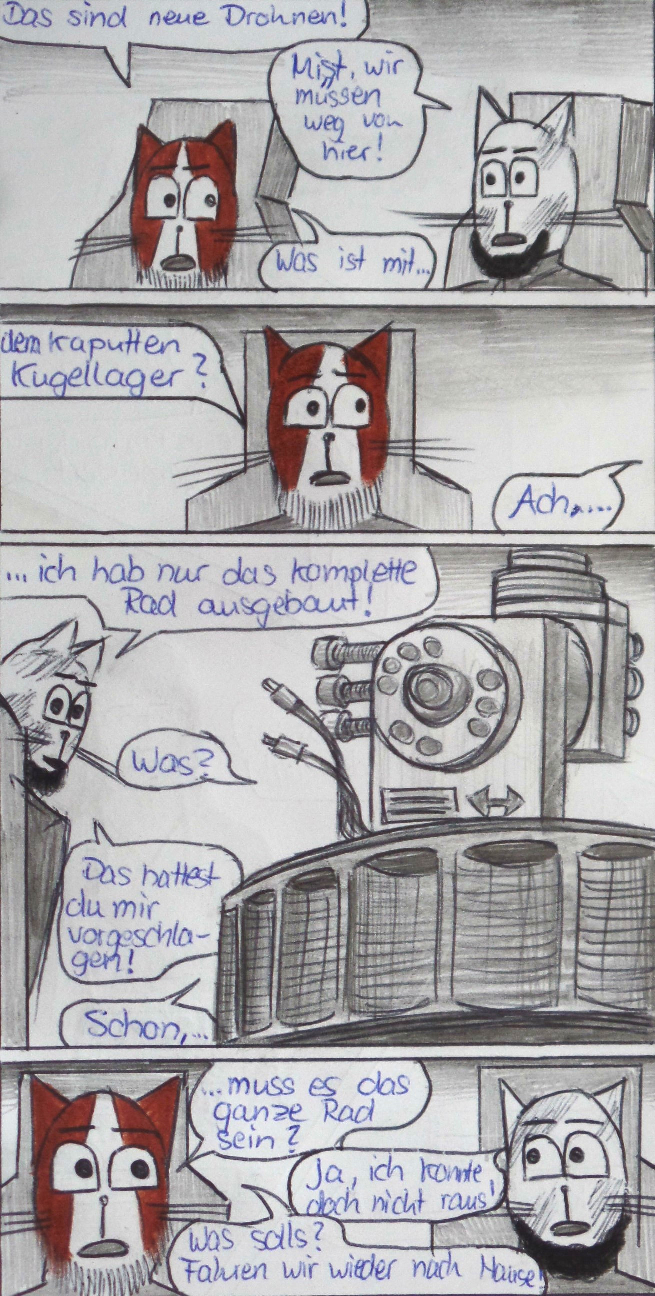 Das sind neue Drohnen!
Mist, wir
müssen
weg von
hier!
Was ist mit...
dem kaputten
Kugellager?
Ach,...
...ich hab nur das komplette
Rad ausgebaut!
Was?
Das hattest
du mir
vorgeschla-
gen!
Schon,...
...muss es das
ganze Rad
sein?
Ja, ich konnte
doch nicht raus!
Was solls?
Fahren wir wieder nach Hause!